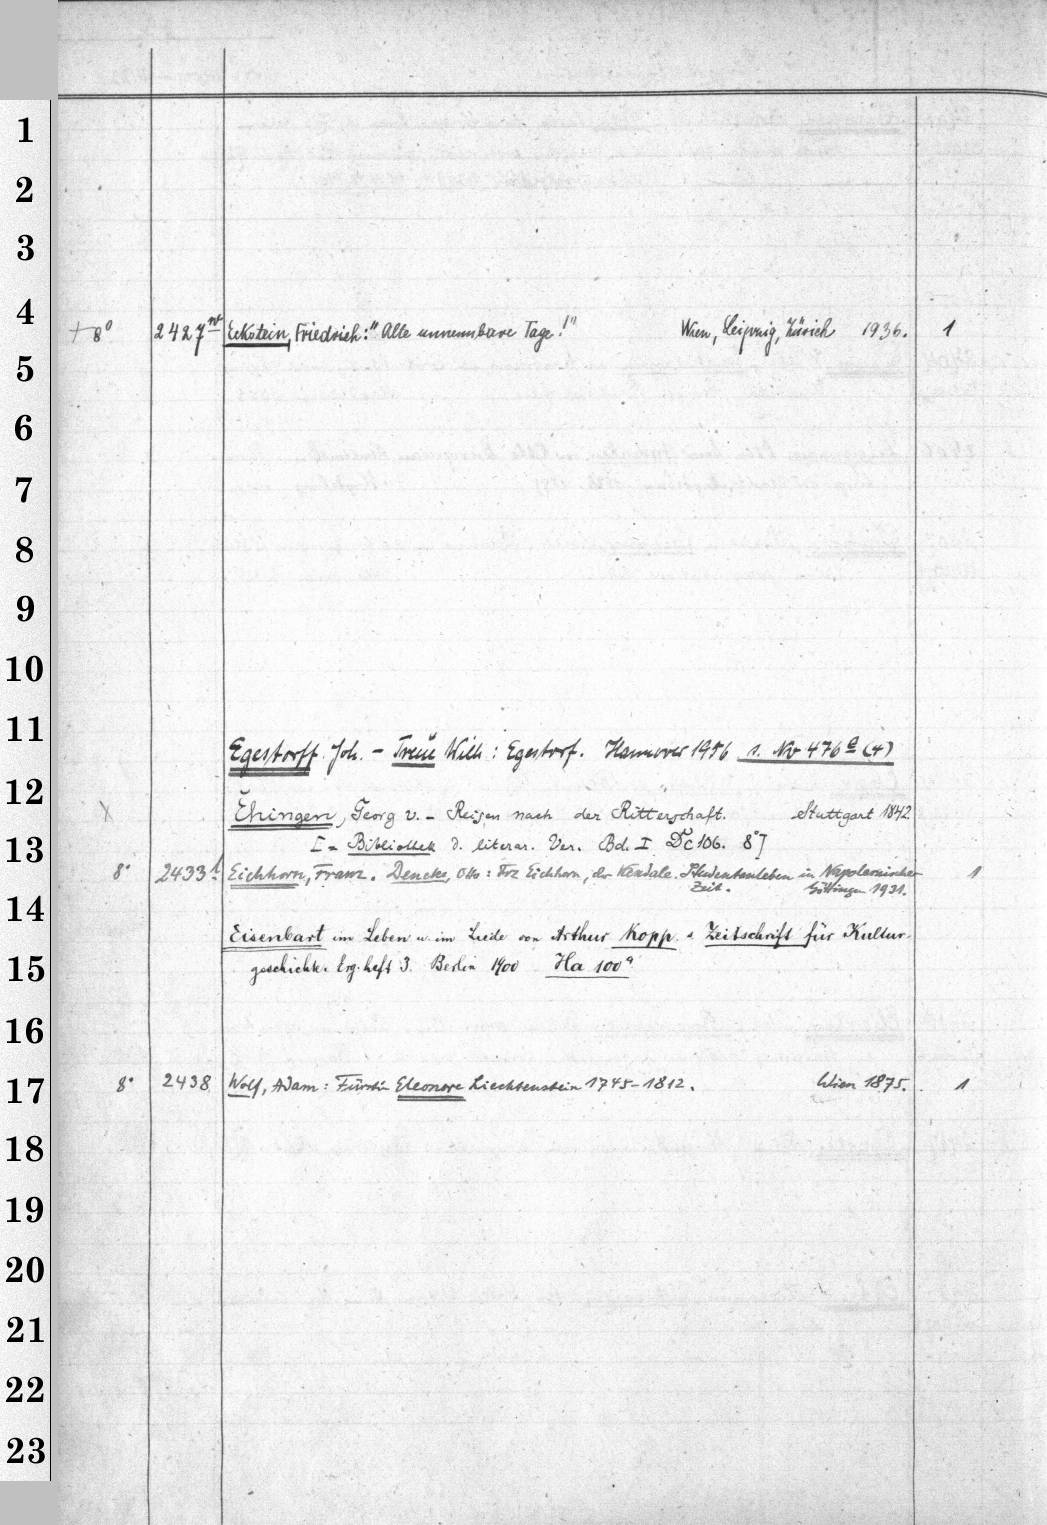 1
2
3
4
+ 8° 2427 Eckstein, Friedrich: "Alte unnennbare Tage!" Wien, Leipzig, Zürich 1936. 1
5
6
7
8
9
10
11
Egestorff Joh. - Treue Wilh: Egestorf. Hannover 1956 s. Nv 476a (4)
12
Ehingen, Georg v. - Reisen nach der Ritterschaft. Stuttgart 1842
[= Bibliothek d. literar. Ver. Bd. I Dc 106. 8°]
13
8° 2433 Eichhorn, Franz. Deneke, Otto: Frz Eichhorn, der Vandale. Studentenleben in Napoleonischer 1
Zeit. Göttingen 1931.
14
Eisenbart im Leben u. im Liede von Arthur Kopp. Zeitschrift für Kultur-
15
geschichte. Erg. heft 3. Berlin 1900 Ha 100a
16
17
8° 2438 Wolf, Adam: Fürstin Eleonore Liechtenstein 1745-1812. Wien 1875. 1
18
19
20
21
22
23